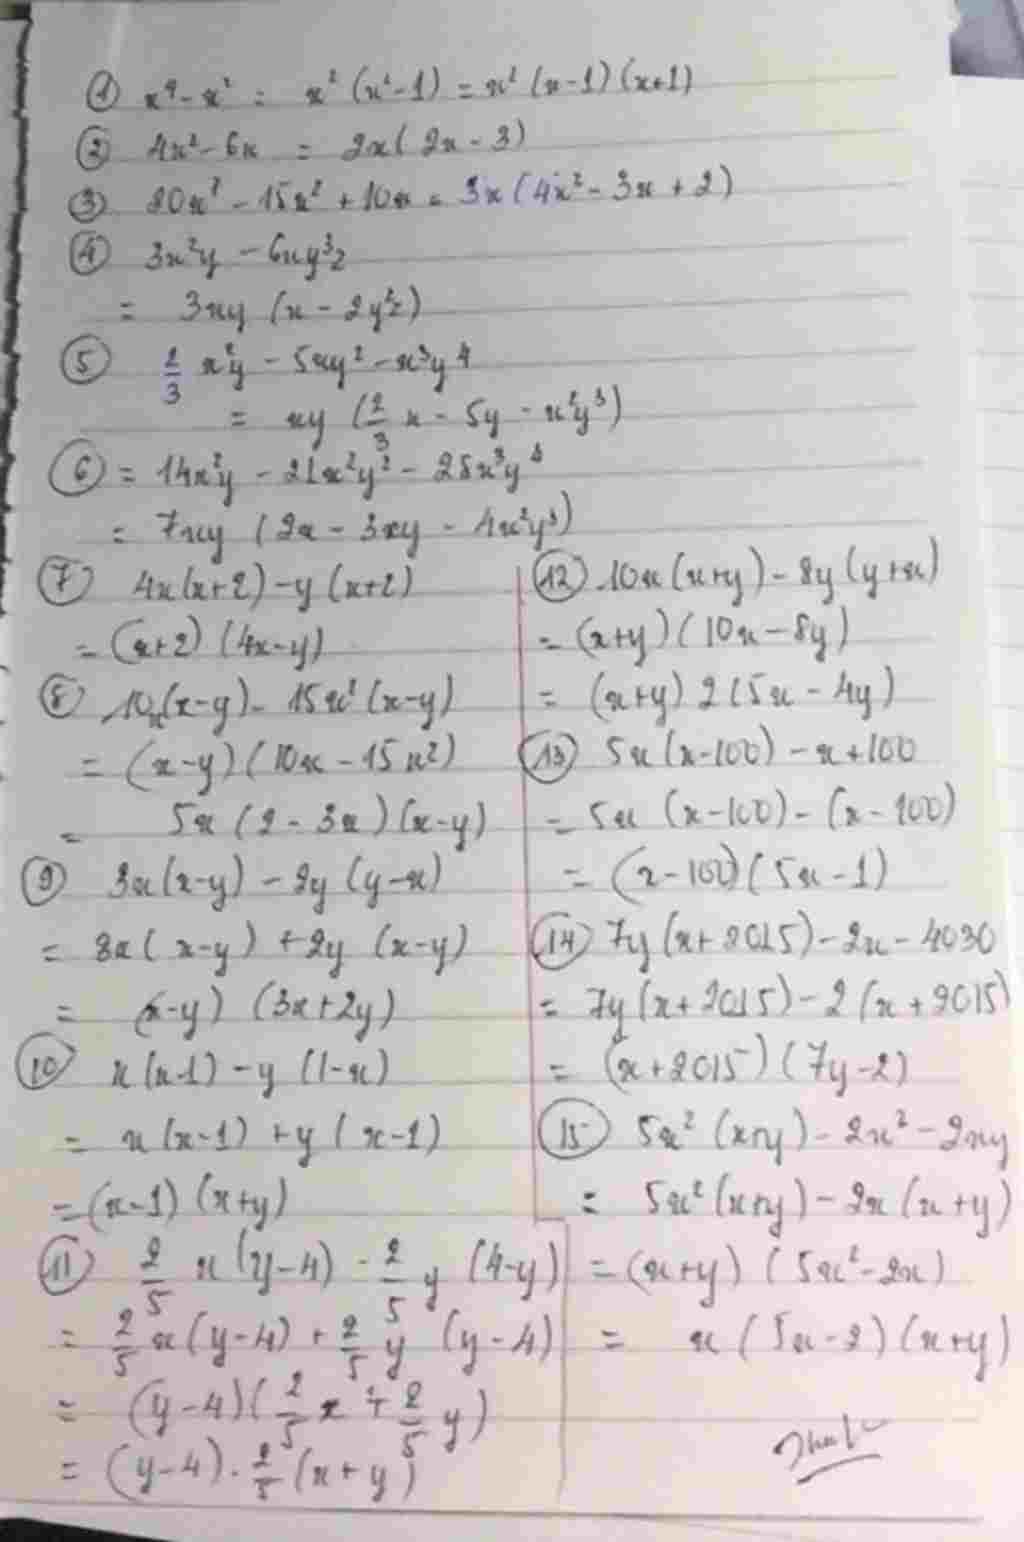 ① x⁴ - x² = x² (x² - 1) = x² (x - 1) (x+1)
② 4x² - 6x = 2x( 2x - 3)
③ 20x³ - 15x² + 10x = 3x (4x² - 3x + 2)
④ 3x²y - 6xy³z
= 3xy (x - 2y²z)
⑤ 2/3 x²y - 5xy² - x³y⁴
= xy (2/3 x - 5y - x²y³)
⑥ = 14x²y - 21x²y² - 28x³y⁴
= 7xy (2x - 3xy - 4x²y³)
⑦ 4x(x+2) - y (x+2)
= (x+2) (4x-y)
⑧ 10x(x-y) - 15x² (x-y)
= (x-y) (10x - 15x²)
= 5x (2 - 3x) (x-y)
⑨ 3x(x-y) - 2y (y-x)
= 3x( x-y) + 2y (x-y)
= (x-y) (3x+2y)
⑩ x(x-1) - y (1-x)
= x (x-1) + y ( x-1)
= (x-1) (x+y)
⑪ 2/5 x (y-4) - 2/5 y (4-y)
= 2/5 x(y-4) + 2/5 y (y-4)
= (y-4) ( 2/5 x + 2/5 y)
= (y-4) . 2/5 (x+y)
⑫ 10x(x+y) - 8y (y+x)
= (x+y) (10x - 8y)
= (x+y) 2 (5x - 4y)
⑬ 5x (x-100) - x+100
= 5x (x-100) - (x-100)
= (x-100) (5x-1)
⑭ 7y (x+2015) - 2x - 4030
= 7y (x+2015) - 2 (x+2015)
= (x+2015) (7y-2)
⑮ 5x² (x+y) - 2x² - 2xy
= 5x² (x+y) - 2x (x+y)
= (x+y) (5x² - 2x)
= x (5x-2) (x+y)